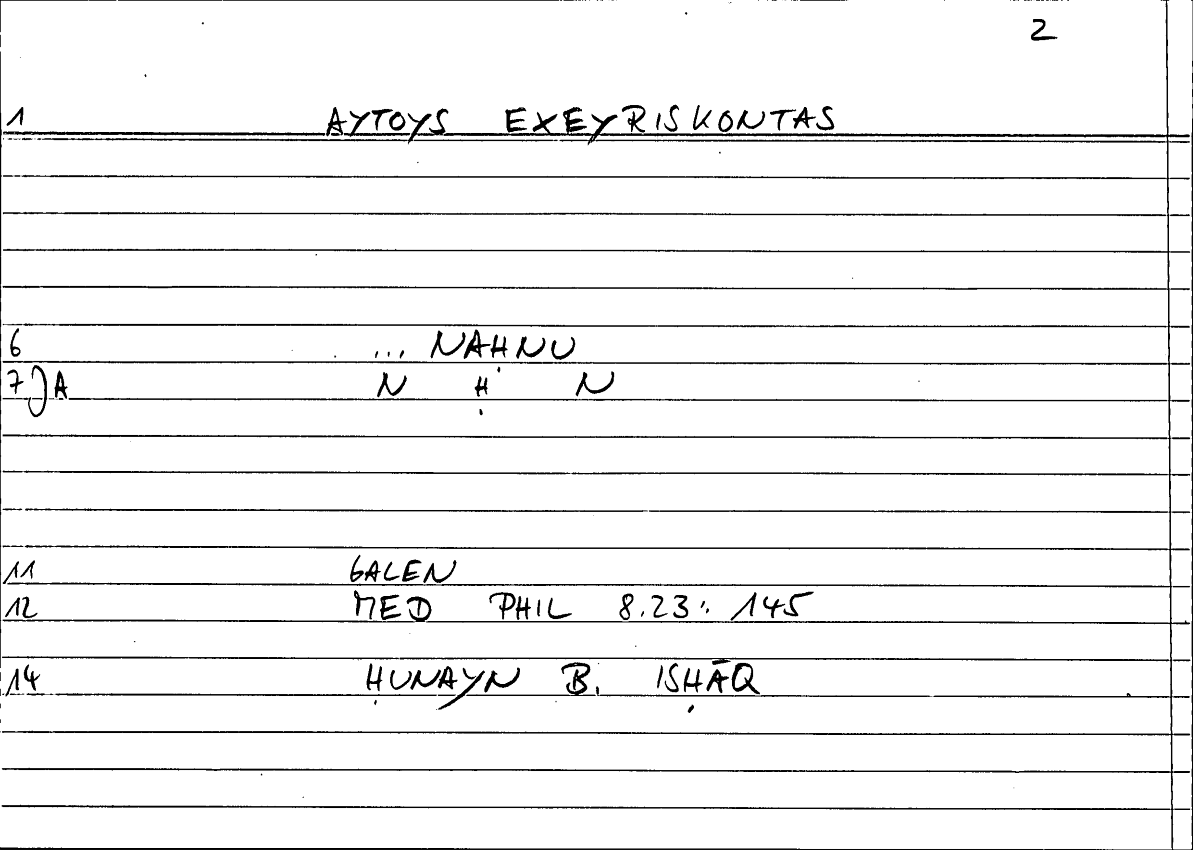 2
1 AYTOYS EXEYRISKONTAS
6 ... NAḤNU
7)A N Ḥ N
11 GALEN
12 MED PHIL 8.23: 145
14 ḤUNAYN B. ISḤĀQ